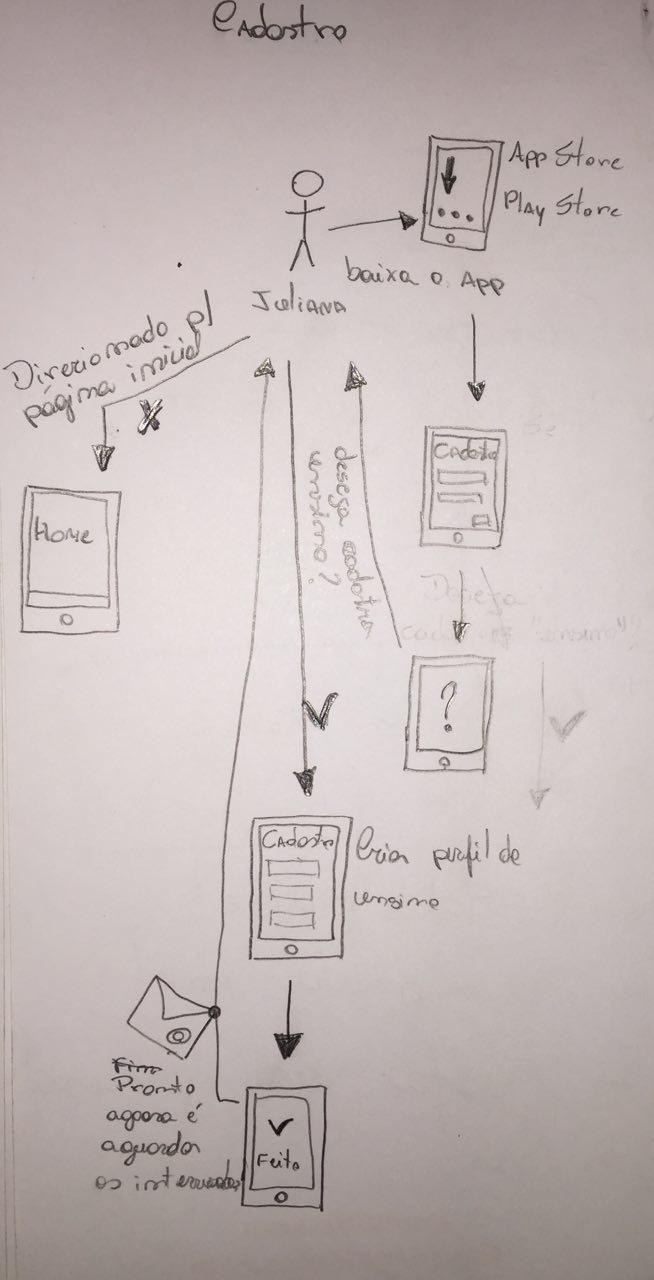 Cadastro
App Store
Play Store
baixa o App
Juliana
Direcionado p/
página inicial
Home
Cadastro
deseja cadastrar
ensino?
Deseja
"ensino"?
?
Cadastro
Criar perfil de
ensino
@
Fim
Pronto
agoora é
aguardar
os interessados
Feito